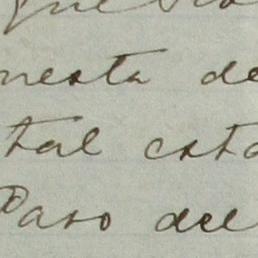 que
nesta de
tal esta
Paso del